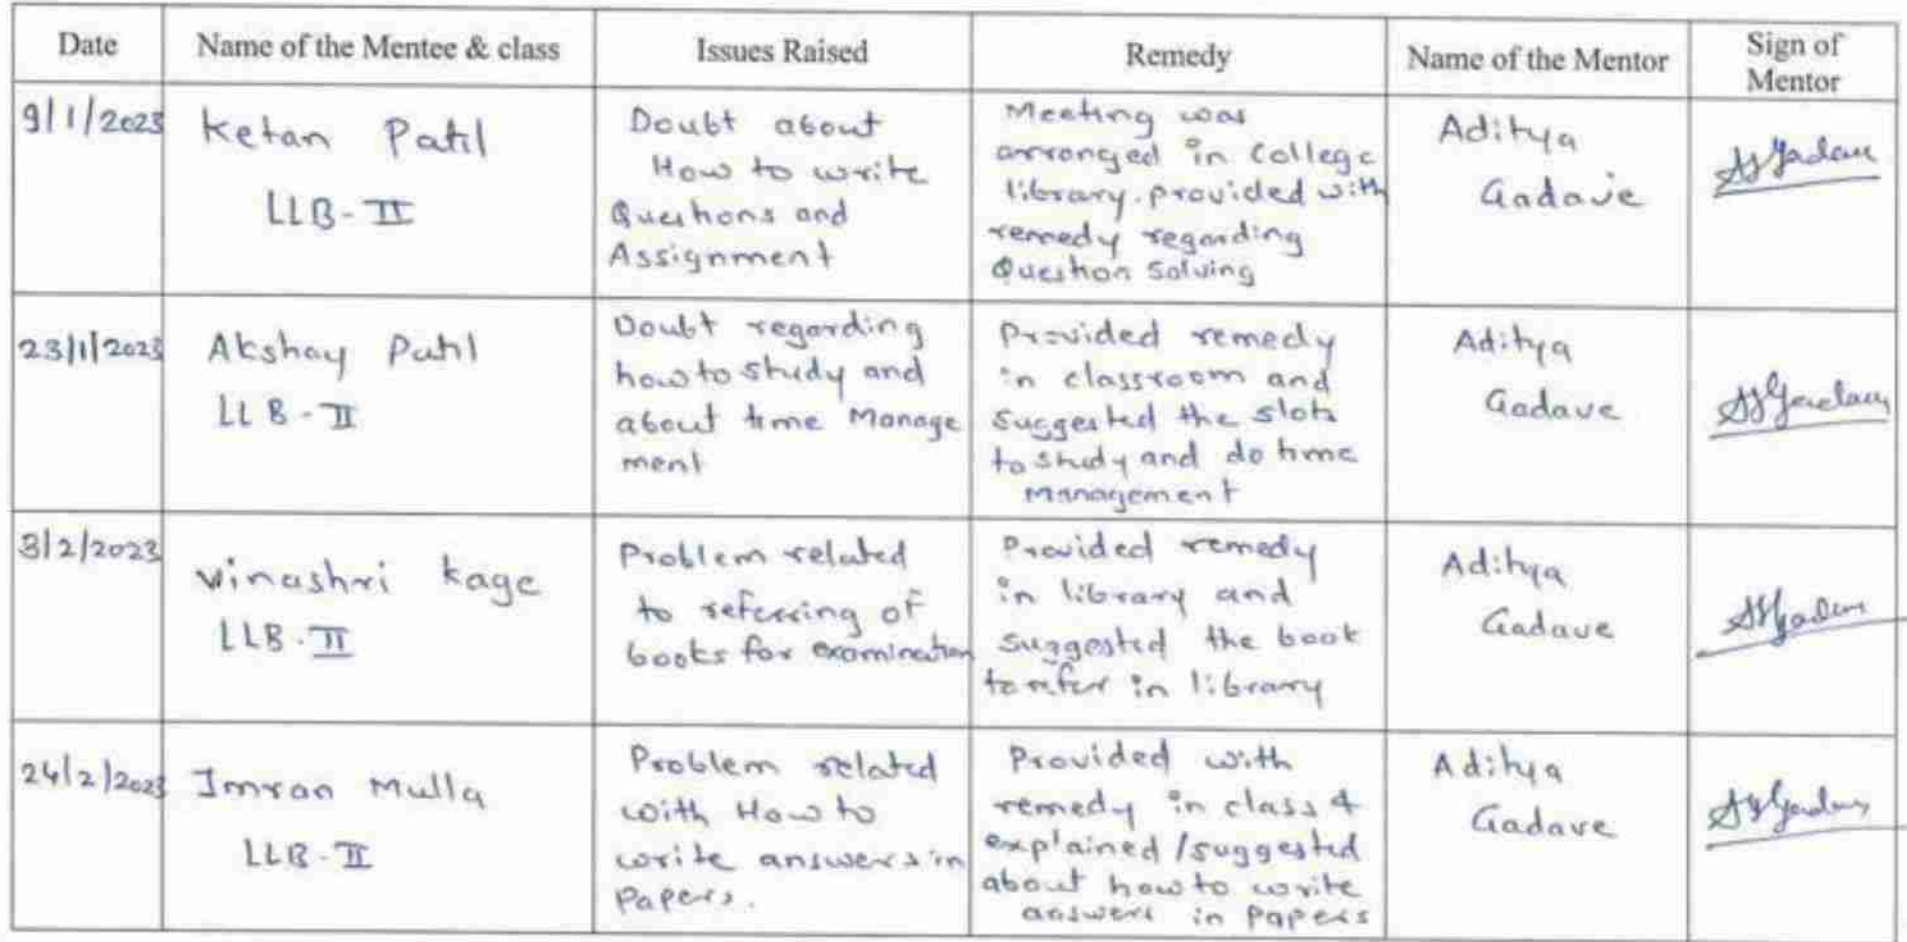 Date
Name of the Mentee & class
Issues Raised
Remedy
Name of the Mentor
Sign of
Mentor
9/1/2023
Ketan Patil
LLB-II
Doubt about
How to write
Questions and
Assignment
Meeting was
arranged in College
library. provided with
remedy regarding
Question Solving
Aditya
Gadave
23/1/2023
Akshay Patil
LLB-II
Doubt regarding
how to study and
about time Manage
ment
Provided remedy
in classroom and
suggested the slots
to study and do time
management
Aditya
Gadave
3/2/2023
Vinashri Kage
LLB.II
Problem related
to referring of
books for examination
Provided remedy
in library and
suggested the book
to refer in library
Aditya
Gadave
24/2/2023
Imran Mulla
LLB-II
Problem related
with How to
write answers in
Papers.
Provided with
remedy in class &
explained /suggested
about how to write
answers in papers
Aditya
Gadave